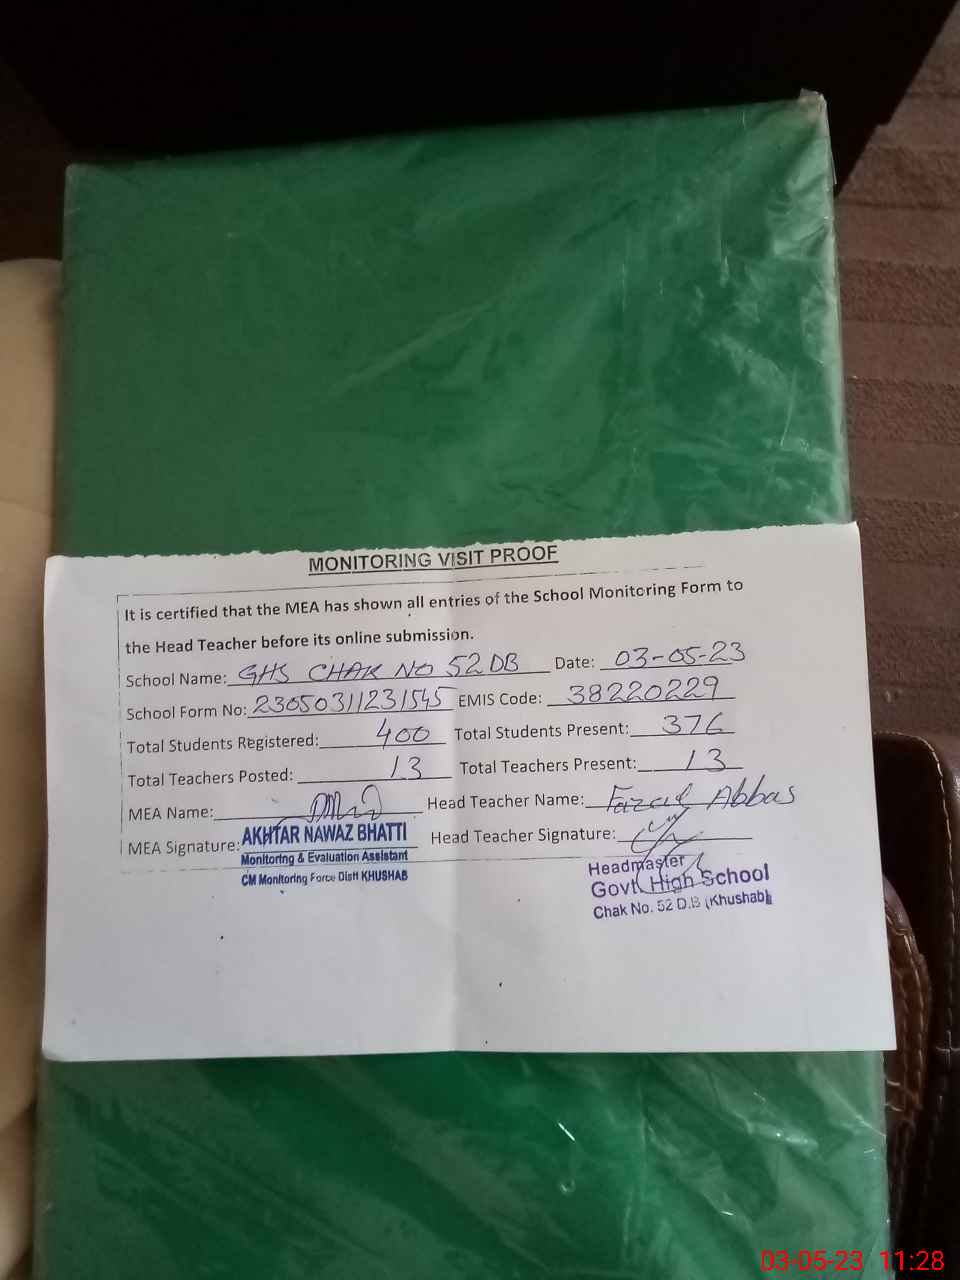 MONITORING VISIT PROOF
It is certified that the MEA has shown all entries of the School Monitoring Form to
the Head Teacher before its online submission.
School Name: GHS CHAK NO 52 DB Date: 03-05-23
School Form No: 23050311231545 EMIS Code: 38220229
Total Students Registered: 400 Total Students Present: 376
Total Teachers Posted: 13 Total Teachers Present: 13
MEA Name: Head Teacher Name: Abbas
MEA Signature: Head Teacher Signature:
AKHTAR NAWAZ BHATTI
Monitoring & Evaluation Assistant
CM Monitoring Force Distt KHUSHAB
Headmaster
Govt. High School
Chak No. 52 D.B (Khushab)
03-05-23 11:28